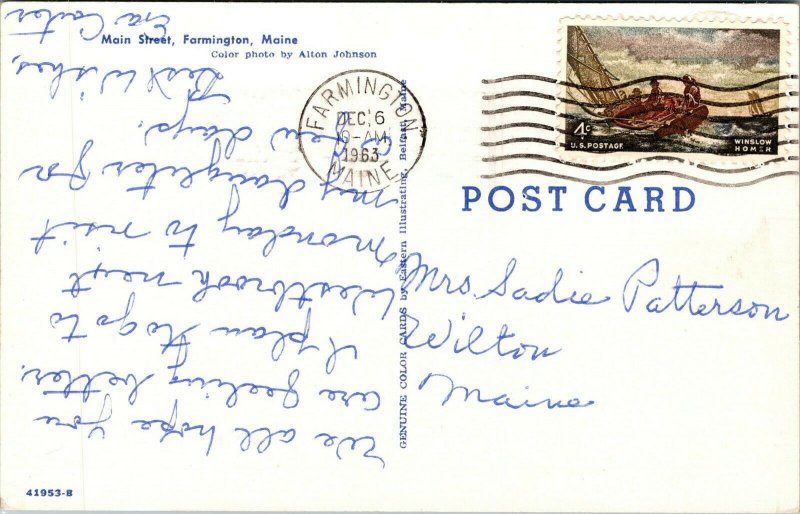 Main Street, Farmington, Maine
Color photo by Alton Johnson
We all hope you
are feeling better.
I plan to go to
Westbrook next
Monday to visit
my daughter for
a few days.
Best Wishes,
Eva Carter
41953-B
GENUINE COLOR CARDS by Eastern Illustrating, Belfast, Maine
FARMINGTON
DEC 6
-AM
1963
MAINE
4c
U.S. POSTAGE
WINSLOW
HOMER
POST CARD
Mrs Sadie Patterson
Wilton
Maine